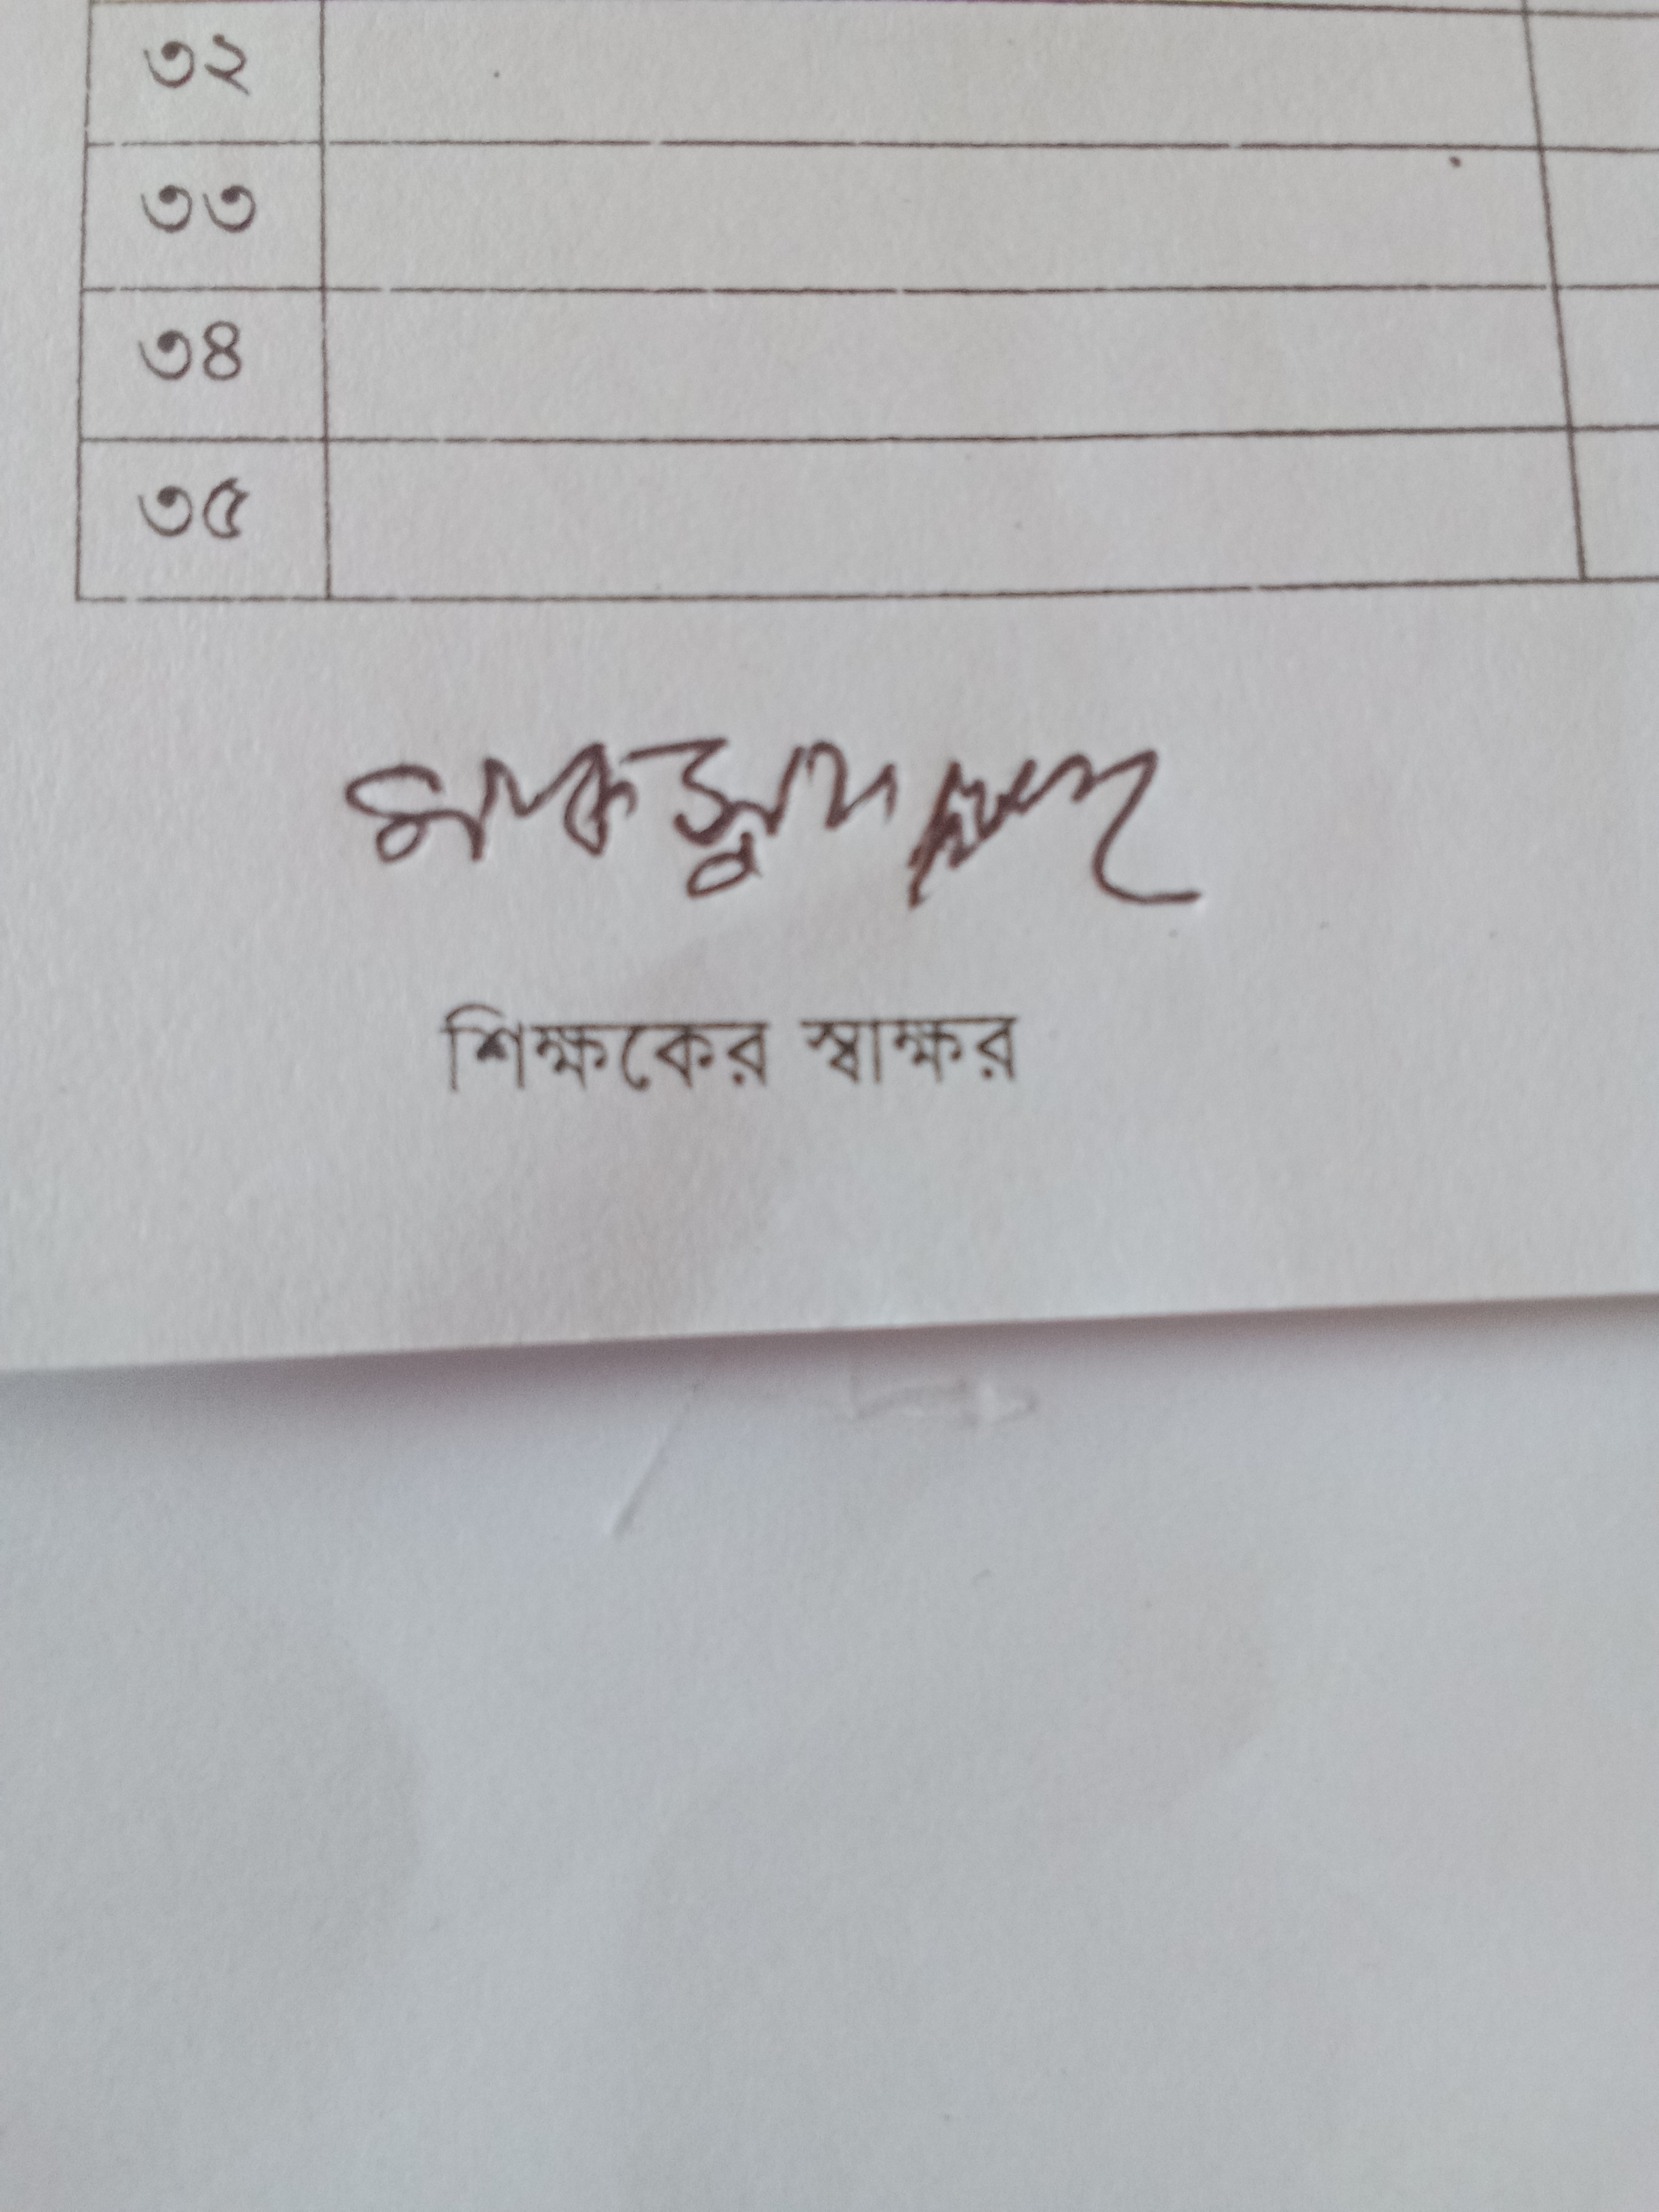 ৩২
৩৩
৩৪
৩৫
শিক্ষকের স্বাক্ষর